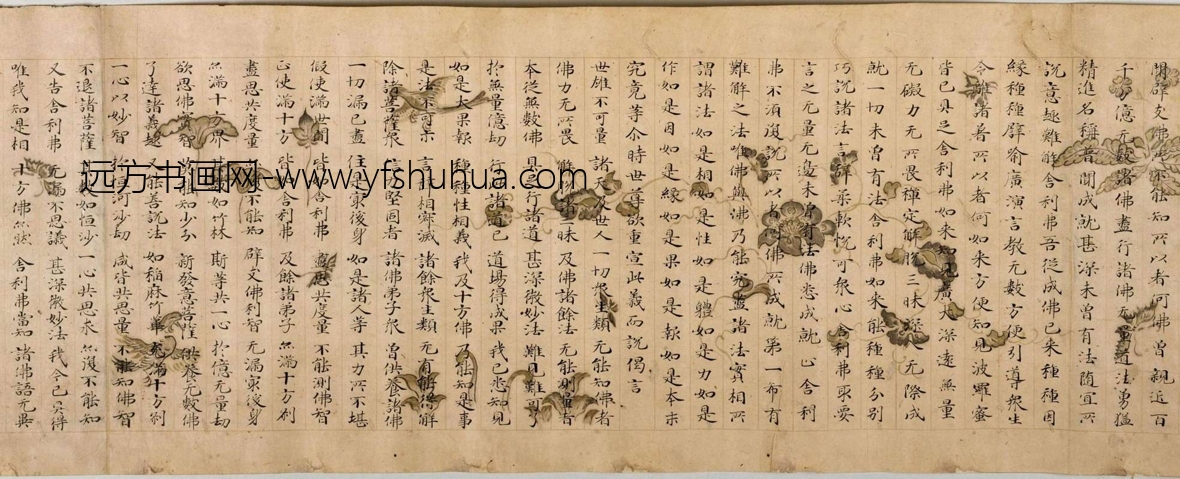 聞辟支佛所不能知所以者何佛曾親近百
千万億无數諸佛盡行諸佛无量道法勇猛
精進名稱普聞成就甚深未曾有法隨宜所
說意趣難解舍利弗吾從成佛已来種種因
緣種種辟喻廣演言教无數方便引導衆生
令離諸著所以者何如来方便知見波羅蜜
皆已具足舍利弗如来知見廣大深遠無量
无礙力无所畏禪定解脫三昧深入无際成
就一切未曾有法舍利弗如来能種種分別
巧說諸法言辭柔軟悅可衆心舍利弗取要
言之无量无邊未曾有法佛悉成就止舍利
弗不須復說所以者何佛所成就第一希有
難解之法唯佛與佛乃能究盡諸法實相所
謂諸法如是相如是性如是體如是力如是
作如是因如是緣如是果如是報如是本末
究竟等尒時世尊欲重宣此義而說偈言
世雄不可量 諸天及世人 一切衆生類 无能知佛者
佛力无所畏 解脫 三昧 及佛諸餘法 无能測量者
本從無數佛 具足行諸道 甚深微妙法 難見難可了
於無量億劫 行 諸道已 道場得成果 我已悉知見
如是大果報 種種性相義 我及十方佛 乃能知是事
是法不可示 言辭相寂滅 諸餘衆生類 无有能得解
除諸菩薩衆 信力堅固者 諸佛弟子衆 曾供養諸佛
一切漏已盡 住是最後身 如是諸人等 其力所不堪
假使滿世間 皆如舍利弗 盡思共度量 不能測佛智
正使滿十方 皆如舍利弗 及餘諸弟子 亦滿十方刹
盡思共度量 不能知 辟支佛利智 无漏最後身
亦滿十方界 其數如竹林 斯等共一心 於億无量劫
欲思佛實智 能知少分 新發意菩薩 供養无數佛
了達諸義趣 又能善說法 如稻麻竹葦 充滿十方刹
一心以妙智 於 河沙劫 咸皆共思量 不能知佛智
不退諸菩薩 其數如恒沙 一心共思求 亦復不能知
又告舍利弗 无漏不思議 甚深微妙法 我今已具得
唯我知是相 十方佛亦然 舍利弗當知 諸佛語无異
远方书画网-www.yfshuhua.com